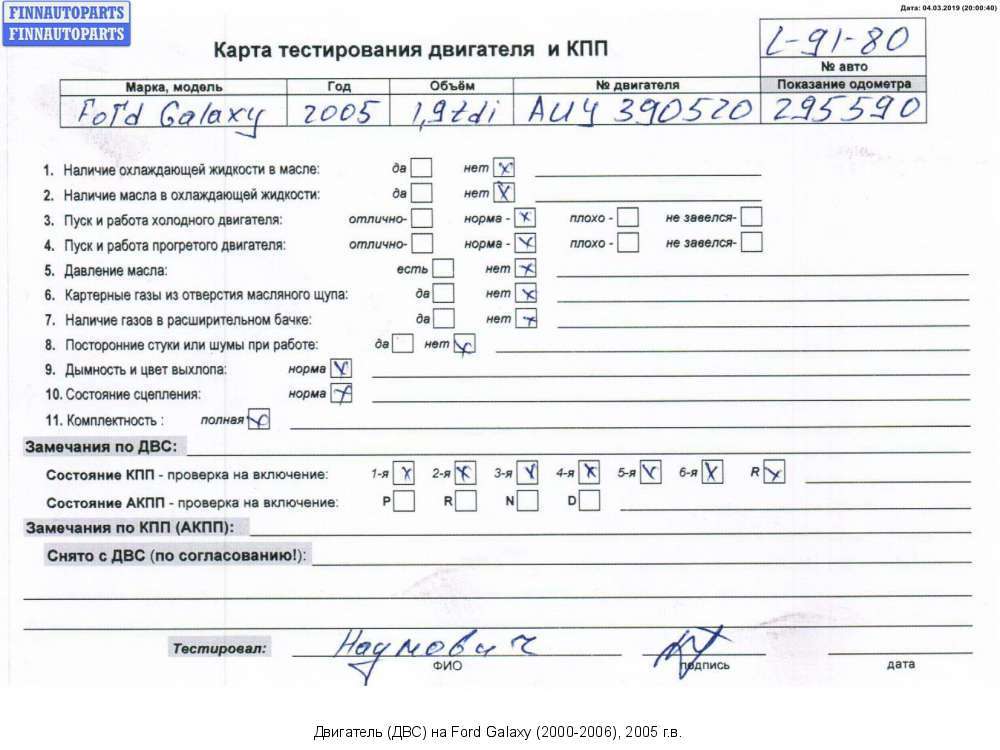 FINNAUTOPARTS
FINNAUTOPARTS
Дата: 04.03.2019 (20:00:40)
Карта тестирования двигателя и КПП
L-91-80
№ авто
Марка, модель Год Объём № двигателя Показание одометра
Ford Galaxy 2005 1,9tdi АИЧ 390520 295590
1. Наличие охлаждающей жидкости в масле: да нет x
2. Наличие масла в охлаждающей жидкости: да нет x
3. Пуск и работа холодного двигателя: отлично- норма - x плохо - не завелся-
4. Пуск и работа прогретого двигателя: отлично- норма - x плохо - не завелся-
5. Давление масла: есть нет x
6. Картерные газы из отверстия масляного щупа: да нет x
7. Наличие газов в расширительном бачке: да нет x
8. Посторонние стуки или шумы при работе: да нет x
9. Дымность и цвет выхлопа: норма x
10. Состояние сцепления: норма x
11. Комплектность : полная x
Замечания по ДВС:
Состояние КПП - проверка на включение: 1-я x 2-я x 3-я x 4-я x 5-я x 6-я x R x
Состояние АКПП - проверка на включение: P R N D
Замечания по КПП (АКПП):
Снято с ДВС (по согласованию!):
Тестировал: Наумович
ФИО подпись дата
Двигатель (ДВС) на Ford Galaxy (2000-2006), 2005 г.в.